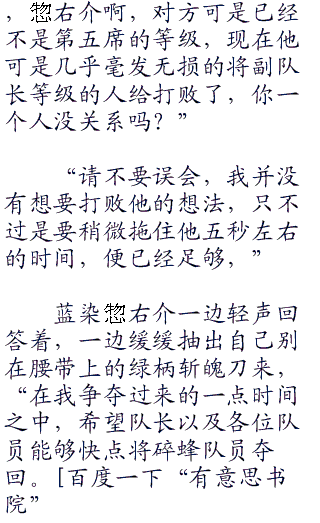 ，惣右介啊，对方可是已经
不是第五席的等级，现在他
可是几乎毫发无损的将副队
长等级的人给打败了，你一
个人没关系吗？”
“请不要误会，我并没
有想要打败他的想法，只不
过是要稍微拖住他五秒左右
的时间，便已经足够，”
蓝染惣右介一边轻声回
答着，一边缓缓抽出自己别
在腰带上的绿柄斩魄刀来，
“在我争夺过来的一点时间
之中，希望队长以及各位队
员能够快点将碎蜂队员夺
回。[百度一下“有意思书
院”